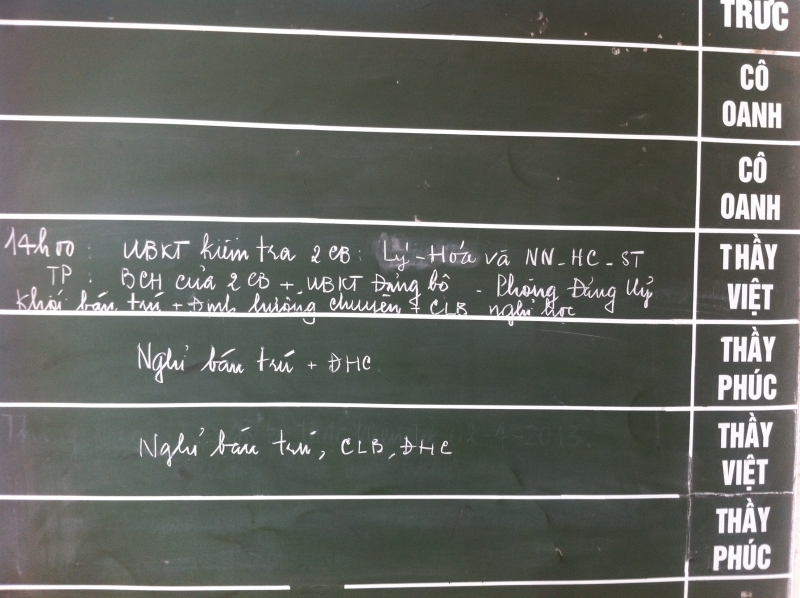 TRỰC
CÔ
OANH
CÔ
OANH
14h00: UBKT kiểm tra 2 CB: Lý - Hóa và NN - HC - ST
TP: BCH của 2 CB + UBKT Đảng bộ - Phòng Đảng Uỷ
Khối bán trú + Định hướng chuyên + CLB nghỉ học
THẦY
VIỆT
Nghỉ bán trú + ĐHC
THẦY
PHÚC
Nghỉ bán trú, CLB, ĐHC
THẦY
VIỆT
THẦY
PHÚC